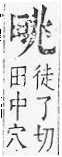 徒了切
田中穴